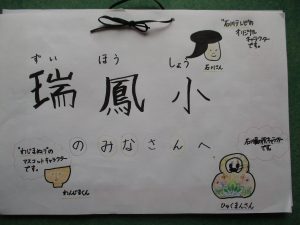 ずい ほう しょう
瑞鳳小
のみなさんへ
"石川テレビ"の
オリジナル
キャラクター
です。
石川さん
"わじまぬり"の
マスコットキャラクター
です。
わんじまくん
石川県の キャラクター
です。
ひゃくまんさん